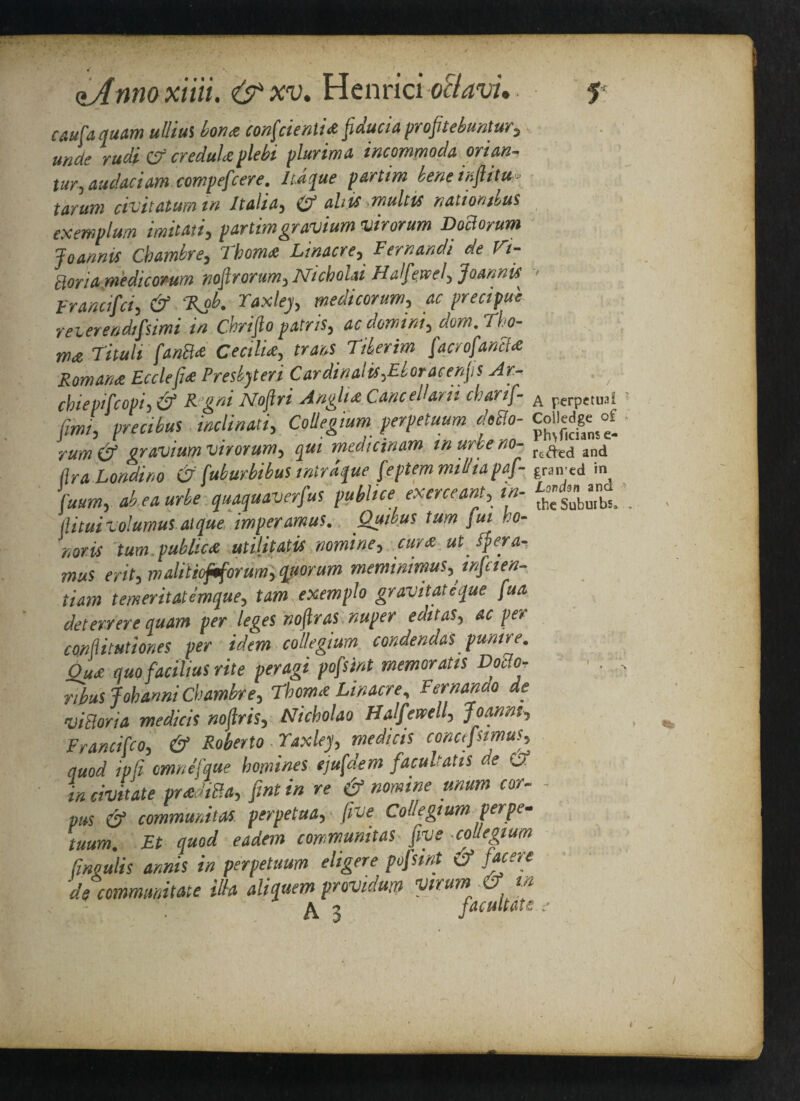 Anno xiiii. & xv. Henrici octavi. 5
causa quam ullius bonæ conscientiæ fiducia profitebuntur,
unde rudi & credulæ plebi plurima incommoda orian-
tur, audaciam compescere. Itáque partim bene institu-
tarum civitatum in Italia, & aliis multis nationibus
exemplum imitati, partim gravium virorum Doctorum
Joannis Chambre, Thomæ Linacre, Fernandi de Vi-
ctoria medicorum nostrorum, Nicholai Halsewel, Joannis
Francisci, & Rob. Yaxley, medicorum, ac precipuè
reverendissimi in Christo patris, ac domini, dom. Tho-
mæ Tituli sanctæ Ceciliæ, trans Tiberim sacrosanctæ
Romanæ Ecclesiæ Presbyteri Cardinalis, Eboracensis Ar-
chiepiscopi, & Regni Nostri Angliæ Cancellarii charis-
simi, precibus inclinati, Collegium perpetuum docto-
rum & gravium virorum, qui medicinam in urbe no-
stra Londino & suburbibus intráque septem millia pas-
suum, ab ea urbe quaquaversus publice exerceant, in-
stitui volumus atque imperamus. Quibus tum sui ho-
noris tum publicæ utilitatis nomine, curæ ut spera-
mus erit, malitiosorum, quorum meminimus, inscien-
tiam temeritatémque, tam exemplo gravitatéque sua
deterrere quam per leges nostras nuper editas, ac per
constitutiones per idem collegium condendas punire.
Quæ quo facilius rite peragi possint memoratis Docto-
ribus Johanni Chambre, Thomæ Linacre, Fernando de
victoria medicis nostris, Nicholao Halsewell, Joanni,
Francisco, & Roberto Yaxley, medicis concessimus,
quod ipsi omnésque homines ejusdem facultatis de &
in civitate prædicta, sint in re & nomine unum cor-
pus & communitas perpetua, sive Collegium perpe-
tuum. Et quod eadem communitas sive collegium
singulis annis in perpetuum eligere possint & facere
de communitate illa aliquem providum virum & in
A 3 facultate
A perpetual
Colledge of
Physicians e-
rected and
granted in
London and
the Suburbs.